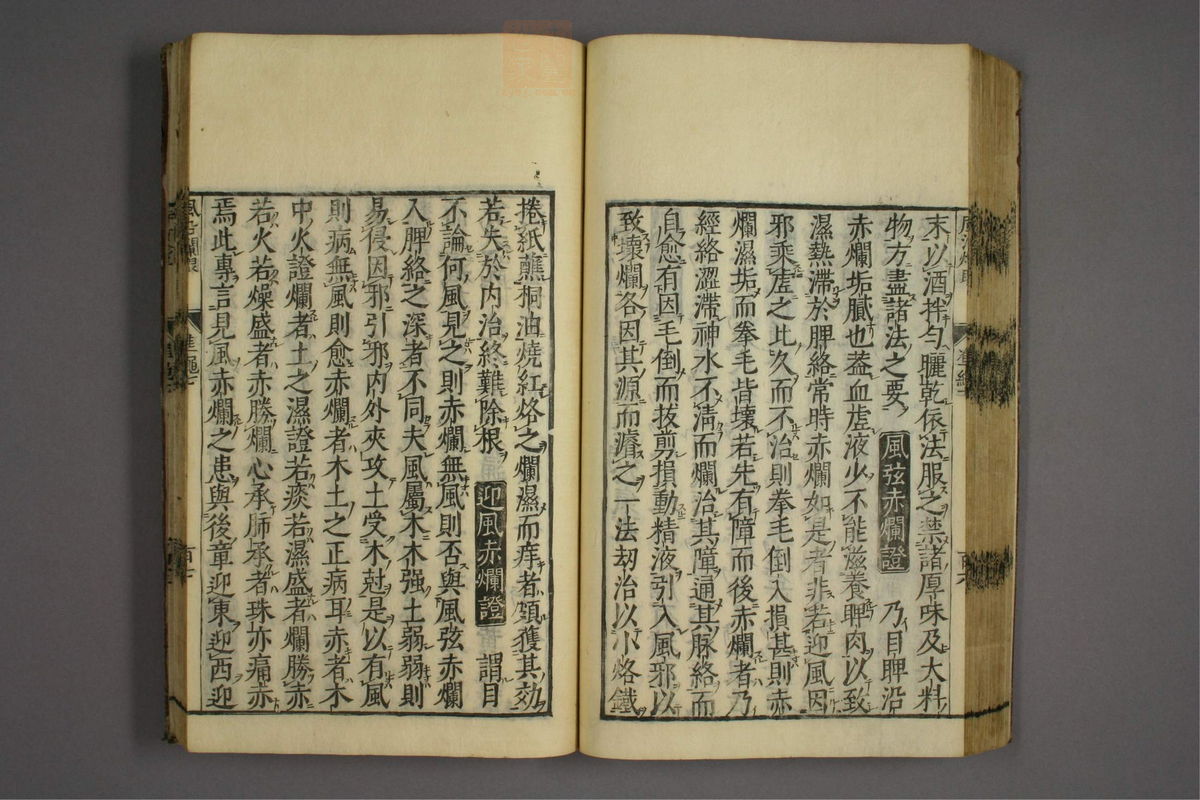 末以酒拌勻曬乾依法服之禁諸厚味及大料
物方盡諸法之要 風弦赤爛證 乃目睥沿
赤爛垢膩也葢血虚液少不能滋養睥肉以致
濕熱滯於脾絡常時赤爛如是者非若迎風因
邪乘虚之比久而不治則拳毛倒入損甚則赤
爛濕垢而拳毛皆壞若先有障而後赤爛者乃
經絡澀滯神水不清而爛治其障通其脉絡而
自愈有因毛倒而拔剪損動精液引入風邪以
致壞爛各因其源而瘡之一法刼治以小烙鐵
捲紙蘸桐油燒紅烙之爛濕而痒者頗獲其効
若失於内治終難除根 迎風赤爛證 謂目
不論何風見之則赤爛無風則否與風弦赤爛
入脾絡之深者不同夫風屬木木强土弱弱則
易侵因邪引邪内外夾攻土受木尅是以有風
則病無風則愈赤爛者木土之正病耳赤者木
中火證爛者土之濕證若痰若濕盛者爛勝赤
若火若燥盛者赤勝爛心承肺承者珠亦痛赤
焉此專言見風赤爛之患與後章迎東迎西迎